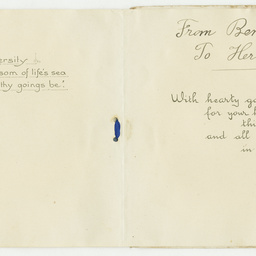 ersity
som of life's sea
thy goings be.'
From Ben
To Her
With hearty go
for your h
thi
and all
in